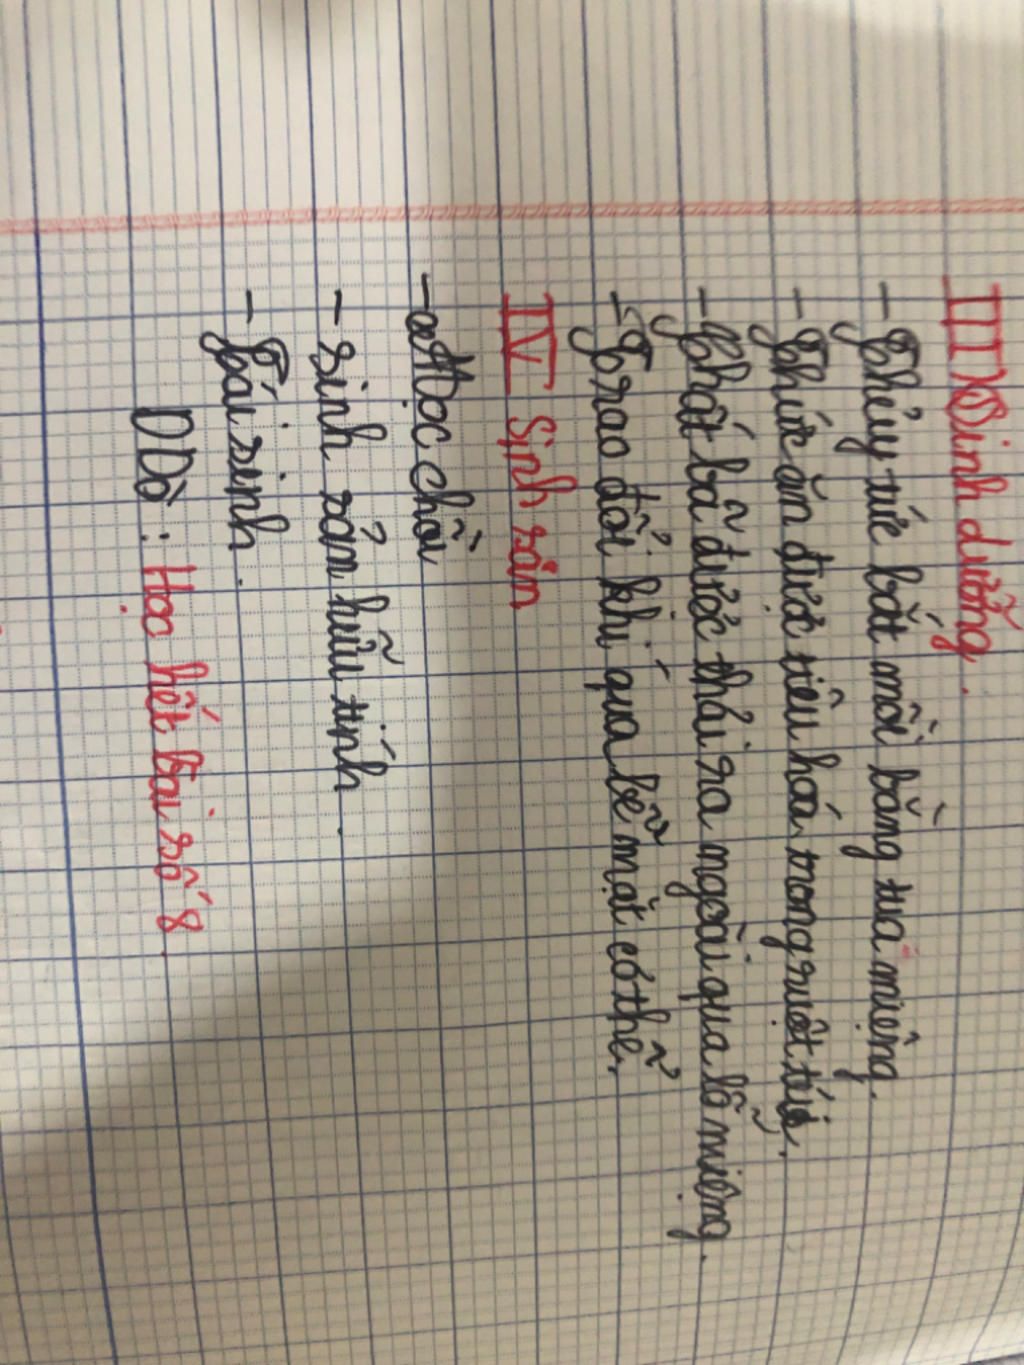 III Dinh dưỡng.
- Thủy tức bắt mồi bằng tua miệng.
- Thức ăn được tiêu hoá trong ruột túi.
- Chất bã được thải ra ngoài qua lỗ miệng.
- Trao đổi khí qua bề mặt cơ thể.
IV Sinh sản
- Mọc chồi
- sinh sản hữu tính.
- Tái sinh.
DDò: Học hết bài số 8